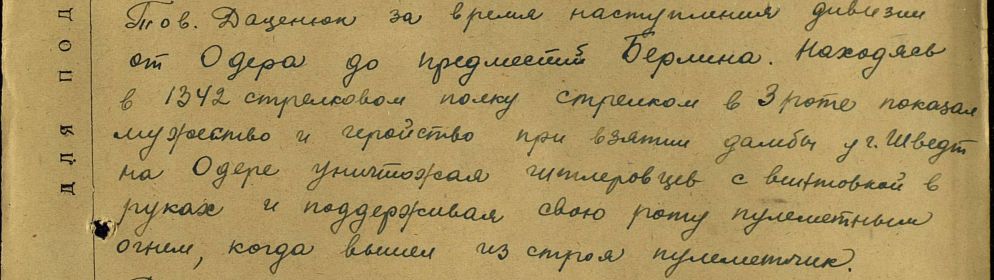 Тов. Даценюк за время наступления дивизии
от Одера до предместий Берлина. Находясь
в 1342 стрелковом полку стрелком в 3 роте показал
мужество и геройство при взятии дамбы у г. Шведт
на Одере уничтожая гитлеровцев с винтовкой в
руках и поддерживая свою роту пулеметным
огнем, когда вышел из строя пулеметчик.
ДЛЯ ПОД